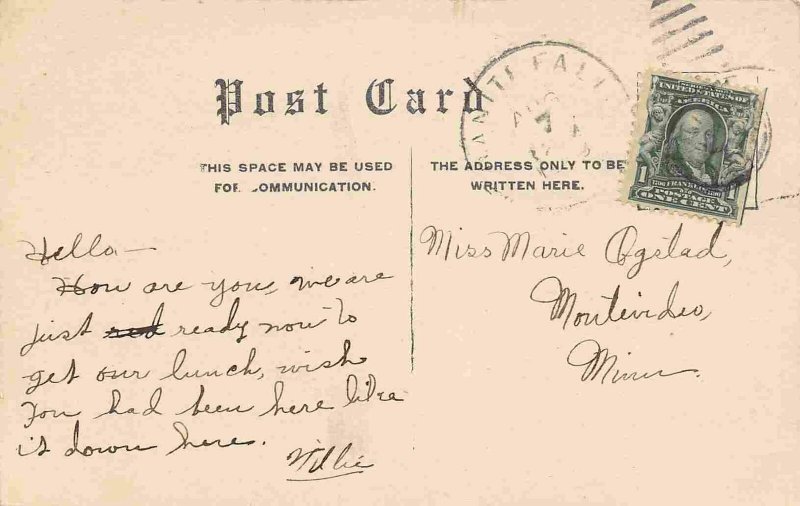 Post Card
THIS SPACE MAY BE USED
FOR COMMUNICATION.
THE ADDRESS ONLY TO BE
WRITTEN HERE.
ANITE FALL
AUG
7
UNITED STATES OF
AMERICA
1
1706 FRANKLIN 1790
POSTAGE
ONE CENT
Hello—
How are you, we are
just red ready now to
get our lunch, wish
You had been here like
it down here.
Willie
Miss Marie Ogstad,
Montevideo,
Minn.